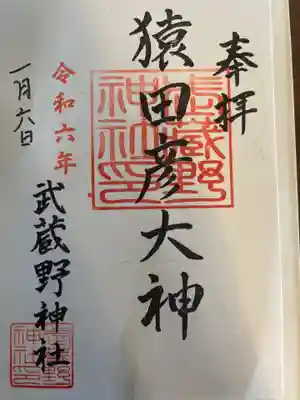 奉拝
猿田彦大神
武蔵野神社印
令和六年
一月六日
武蔵野神社